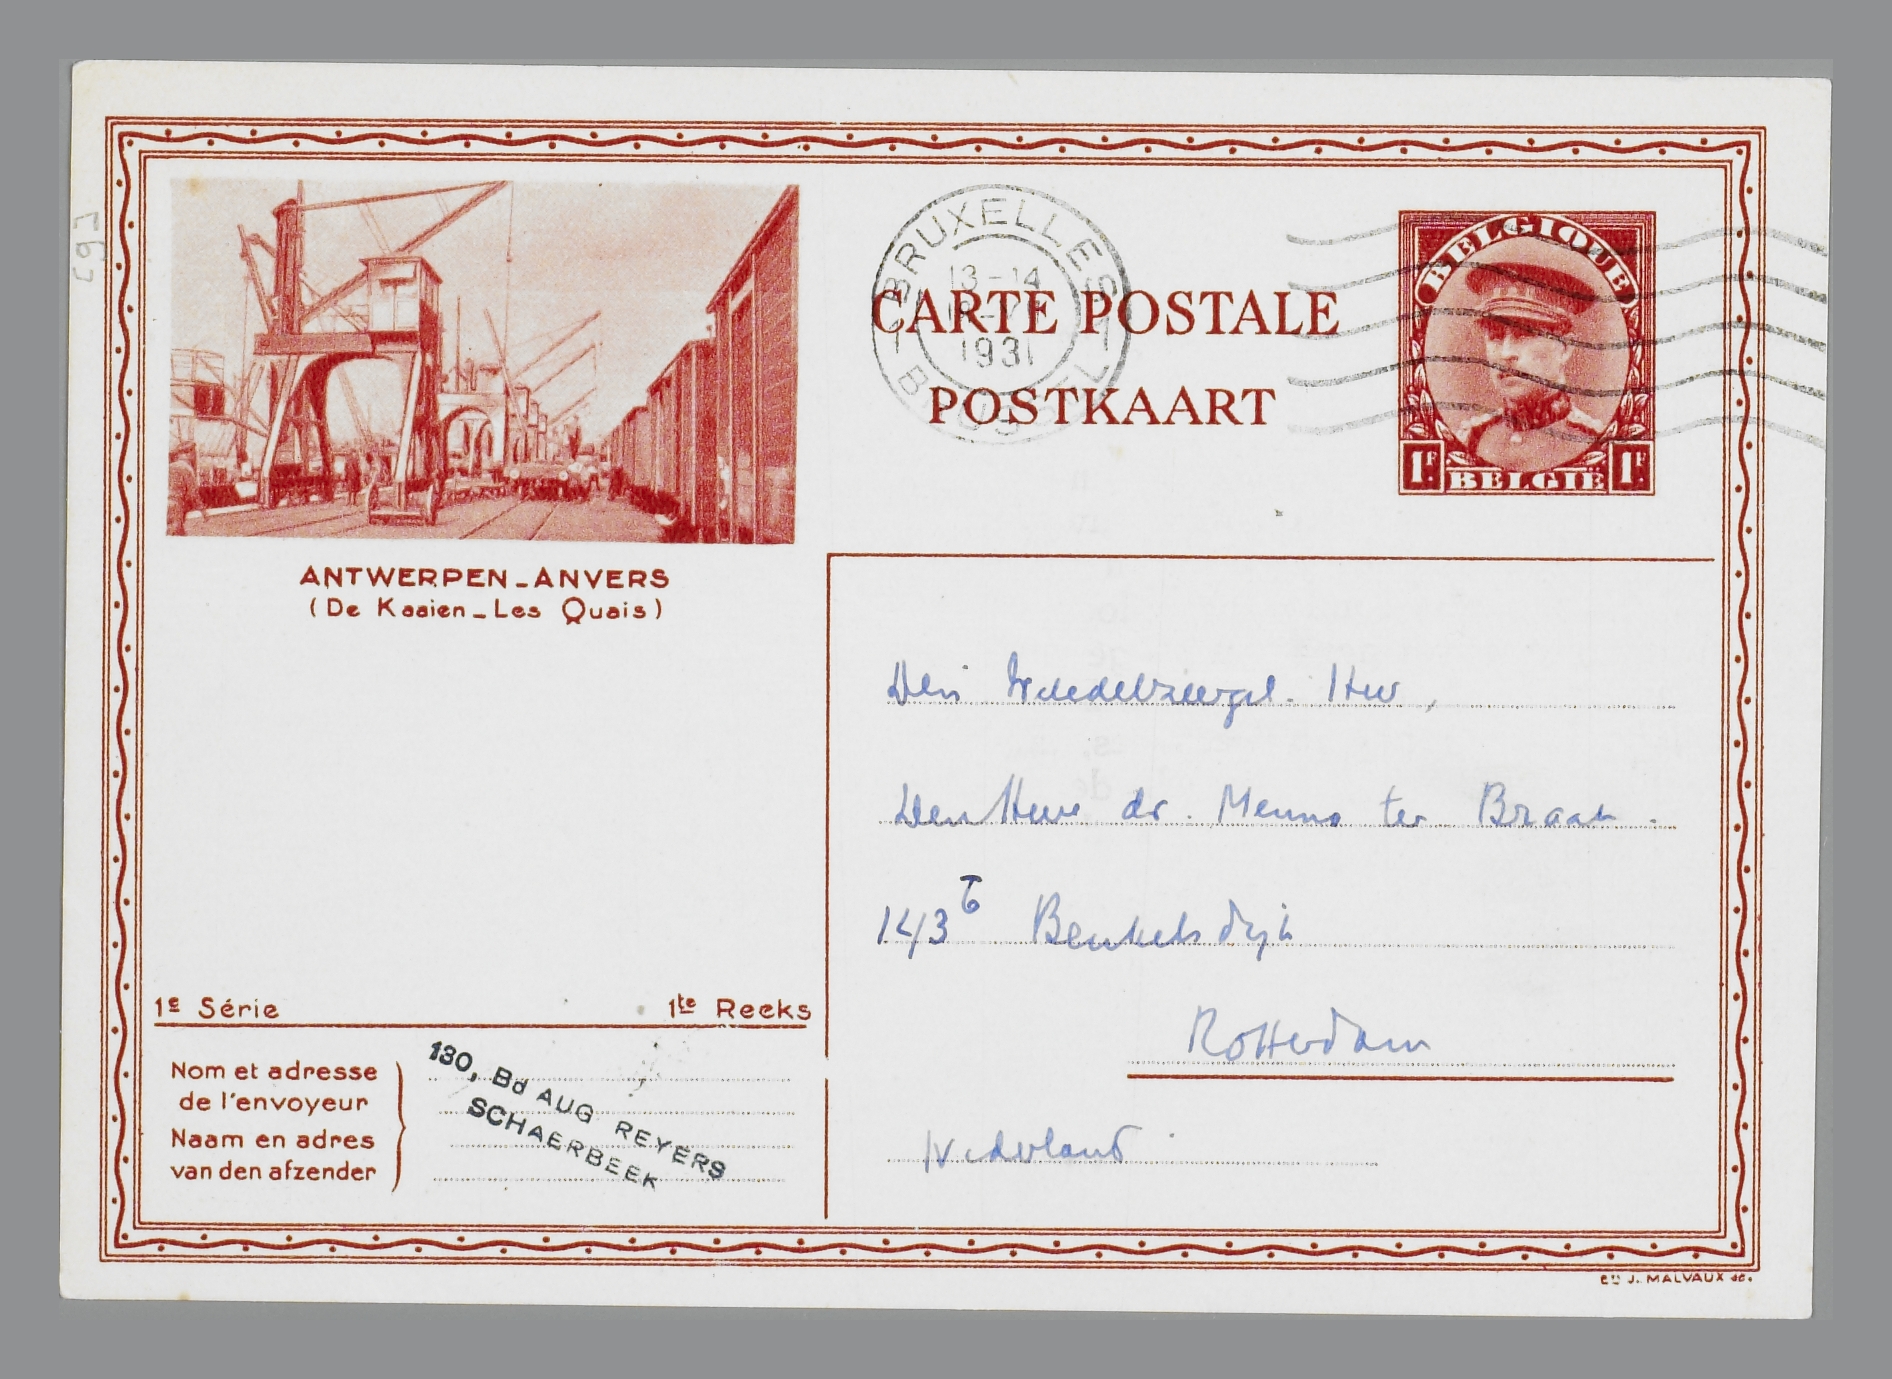 [69]
ANTWERPEN_ANVERS
(De Kaaien_Les Quais)
BRUXELLES 1
13-14
1931
BRUSSEL 1
CARTE POSTALE
POSTKAART
BELGIQUE
1F BELGIË 1F
Den Weledelzeergel. Heer,
Den Heer dr. Menno ter Braak.
143b Beukelsdijk
Rotterdam
Nederland.
1e Série
1te Reeks
Nom et adresse
de l'envoyeur
Naam en adres
van den afzender
130, Bd AUG REYERS
SCHAERBEEK
Ets J. MALVAUX sc.